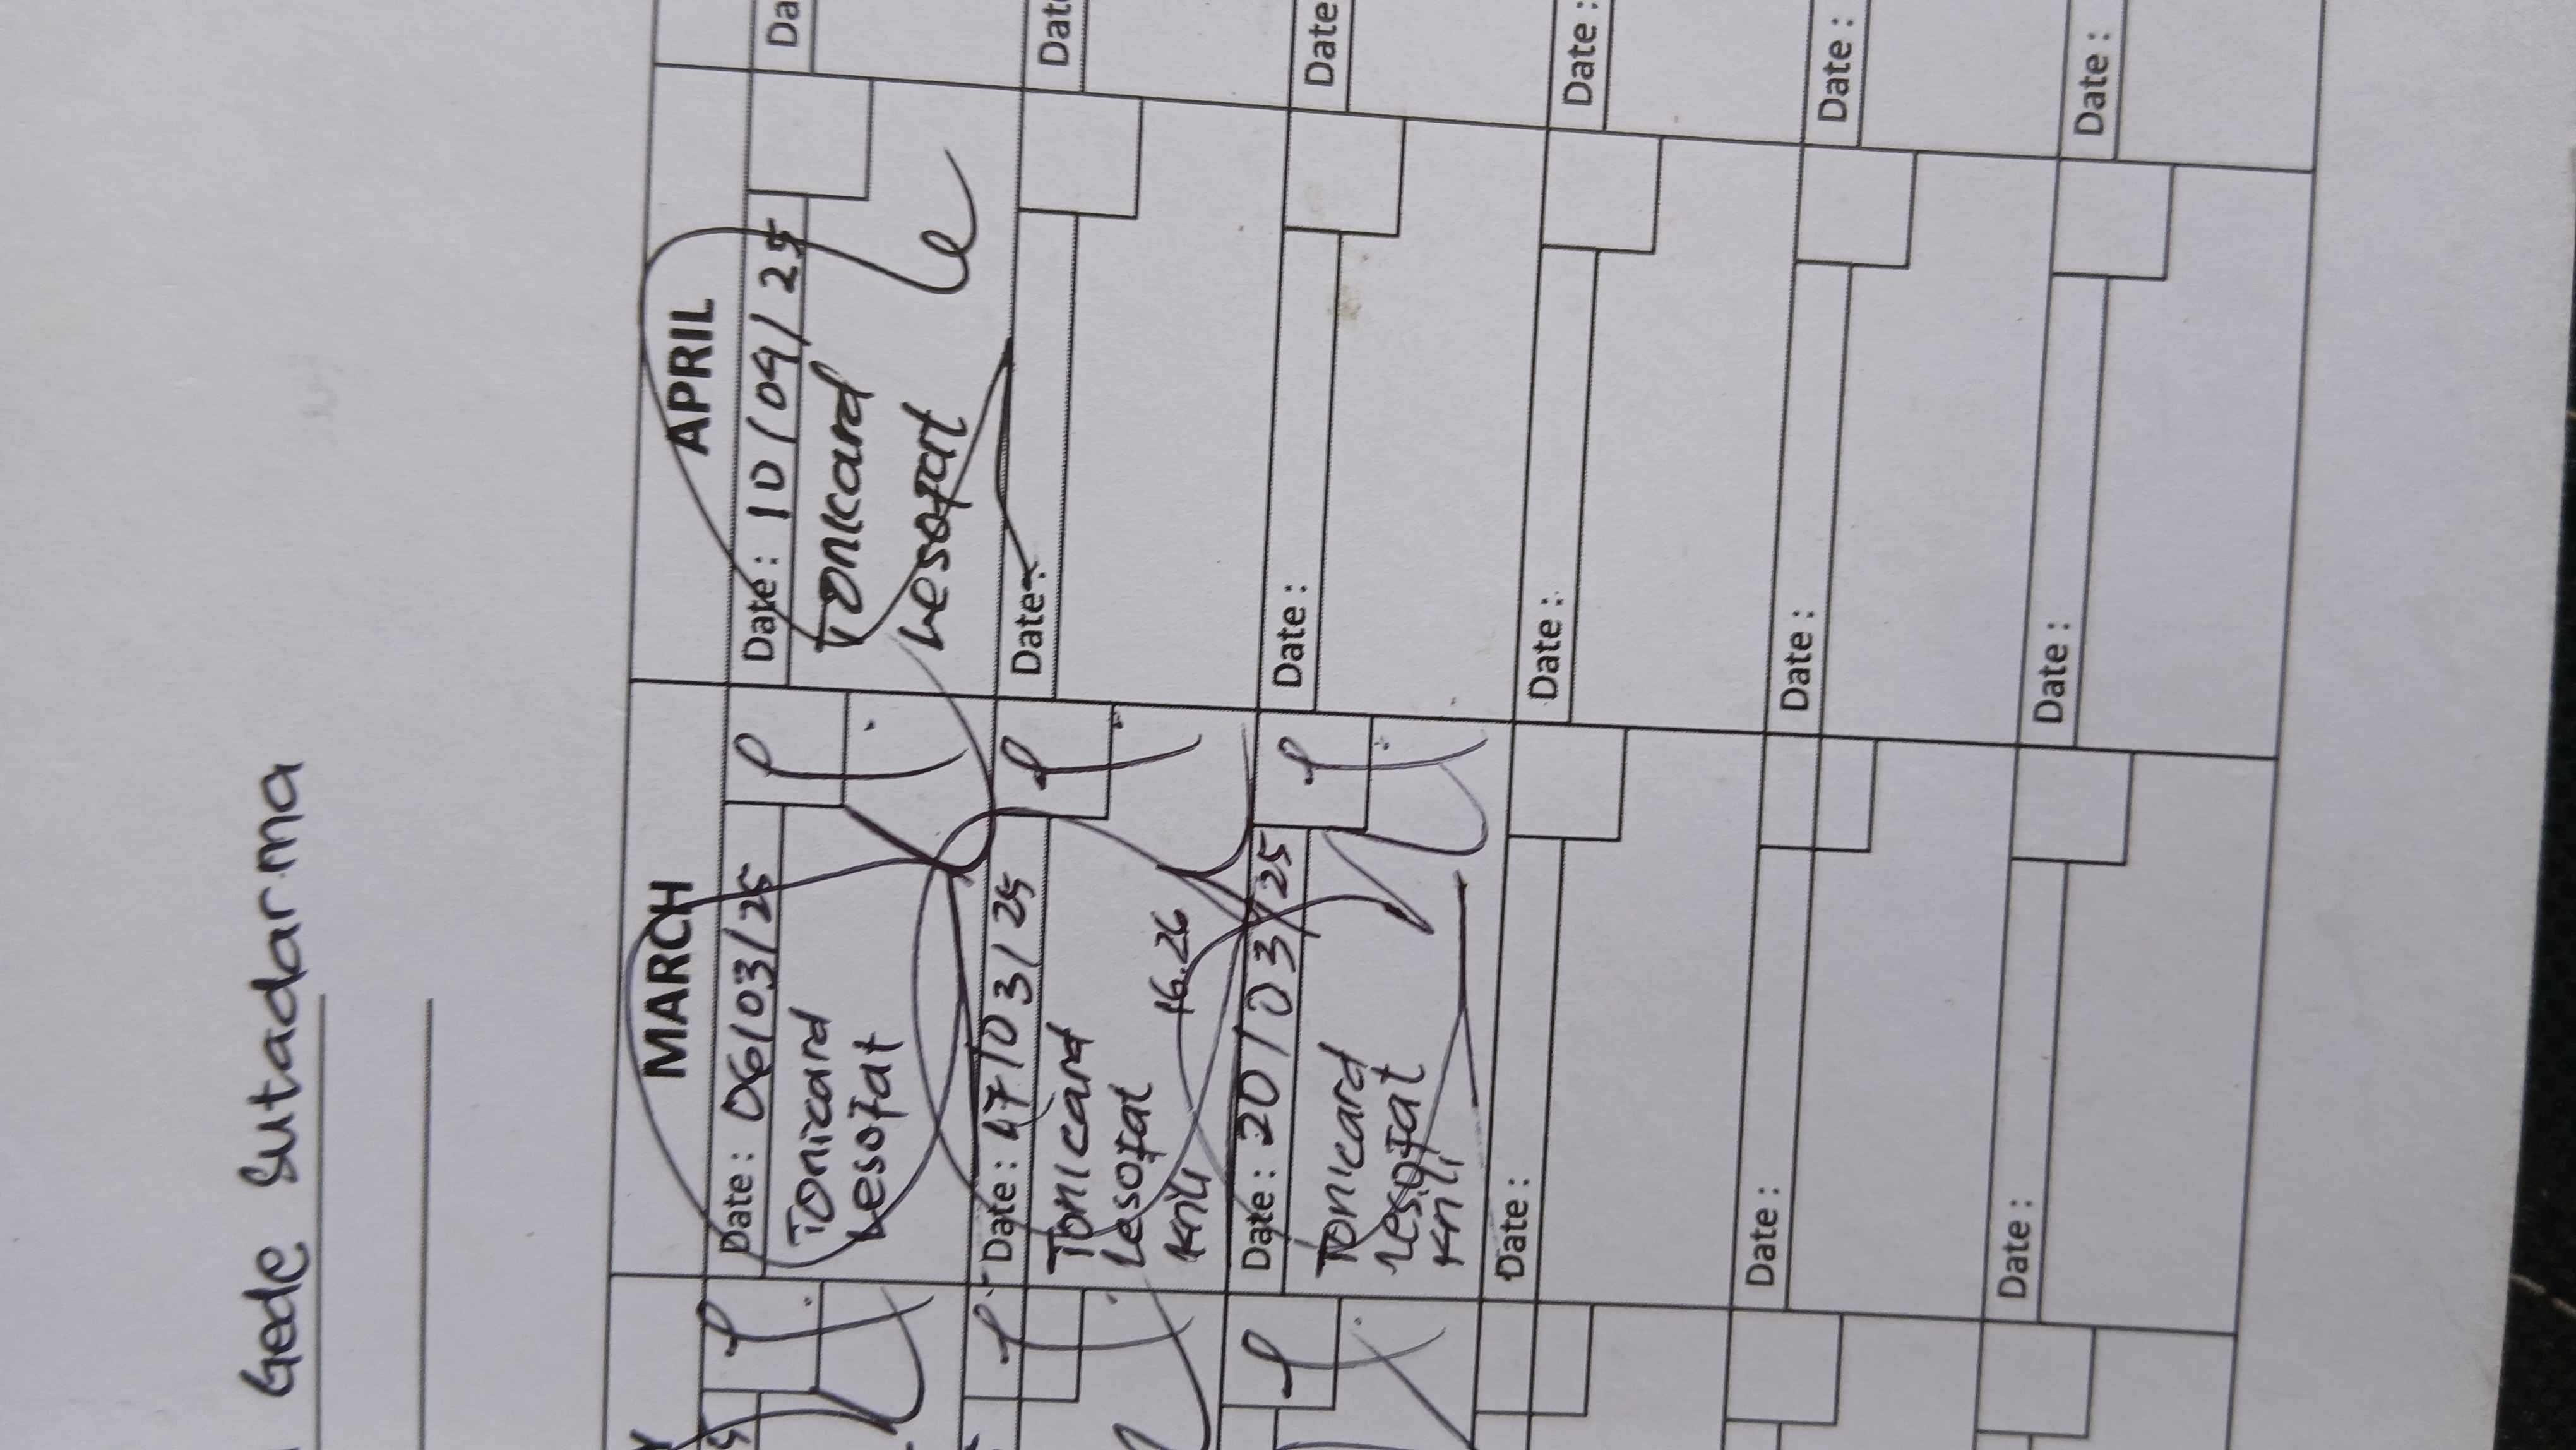 Gede Sutadarma
MARCH
Date : 06/03/25
Tonicard
Lesofat
Date : 17/03/25
Tonicard
Lesofat
16.26
Date : 20/03/25
Tonicard
Lesofat
Date :
Date :
Date :
APRIL
Date : 10/04/25
Tonicard
Lesofat
Date :
Date :
Date :
Date :
Date :
Da
Dat
Date
Date :
Date :
Date :